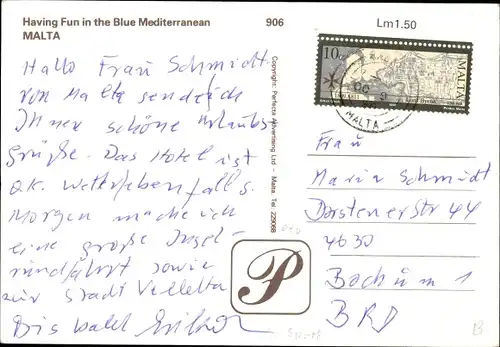 Having Fun in the Blue Mediterranean
MALTA
906
Lm1.50
Hallo Frau Schmidt.
von Malta sende ich
Ihnen schöne Urlaubs
grüße. Das Hotel ist
o.k. Wetter ebenfalls.
Morgen mache ich
eine große Insel-
rundfahrt sowie
zur Stadt Valletta
Bis bald
Copyright: Perfecta Advertising Ltd — Malta. Tel. 229088
P
10c
MALTA
MALTA
Frau
Maria Schmidt
Dorstenerstr 44
4630
Bochum 1
BRD
B